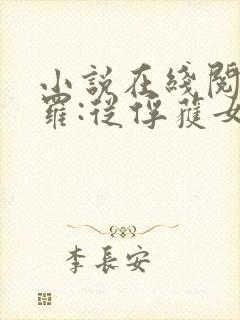 小說在綫閱
羅:從俘獲女
李長安